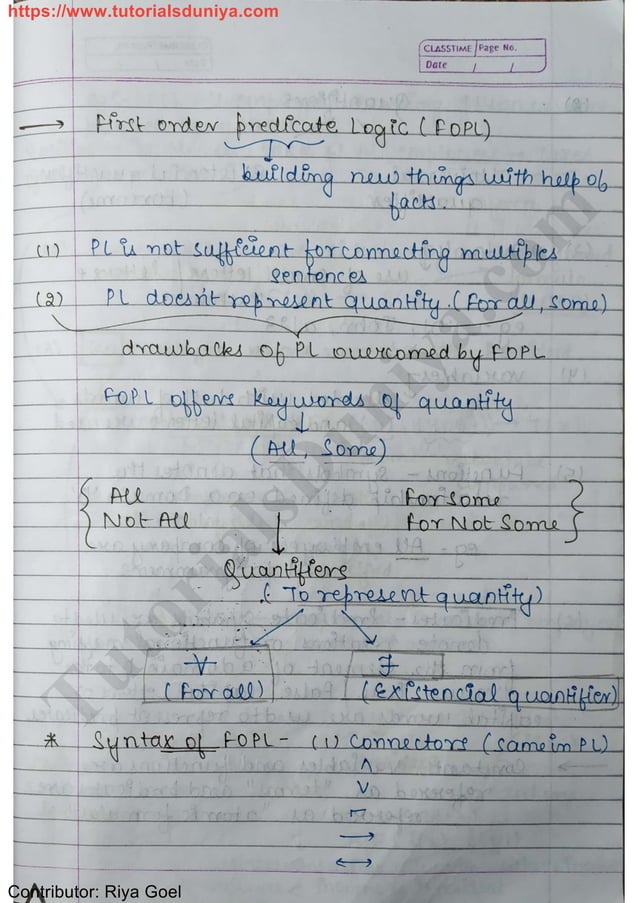 https://www.tutorialsduniya.com
CLASSTIME Page No.
Date / /
→ First order predicate Logic (FOPL)
building new things with help of
facts.
(1) PL is not sufficient for connecting multiples
sentences
(2) PL doesn't represent quantity. (For all, some)
drawbacks of PL overcomed by FOPL
FOPL offers keywords of quantity
(All, Some)
All For some
Not All For Not Some
Quantifiers
(To represent quantity)
∀ ∃
(For all) (Existencial quantifier)
* Syntax of FOPL - (1) Connectors (same in PL)
∧
∨
¬
→
↔
TutorialsDuniya.com
Contributor: Riya Goel